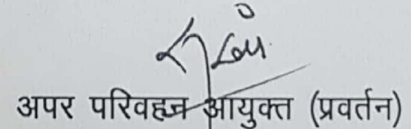 अपर परिवहन आयुक्त (प्रवर्तन)